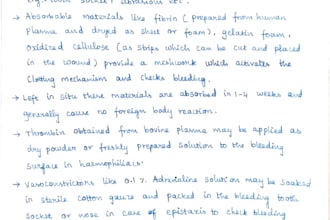 E.g.: tooth socket, abrasions etc.
→ Absorbable materials like fibrin (prepared from human
plasma and dryed as sheet or foam), gelatin foam,
oxidized cellulose (as strips which can be cut and placed
in the wound) provide a meshwork which activates the
clotting mechanism and checks bleeding.
→ Left in situ these materials are absorbed in 1-4 weeks and
generally cause no foreign body reaction.
→ Thrombin obtained from bovine plasma may be applied as
dry powder or freshly prepared solution to the bleeding
surface in haemophiliacs.
→ Vasoconstrictors like 0.1% Adrenaline solution may be soaked
in sterile cotton gauze and packed in the bleeding tooth
socket or nose in case of epistaxis to check bleeding